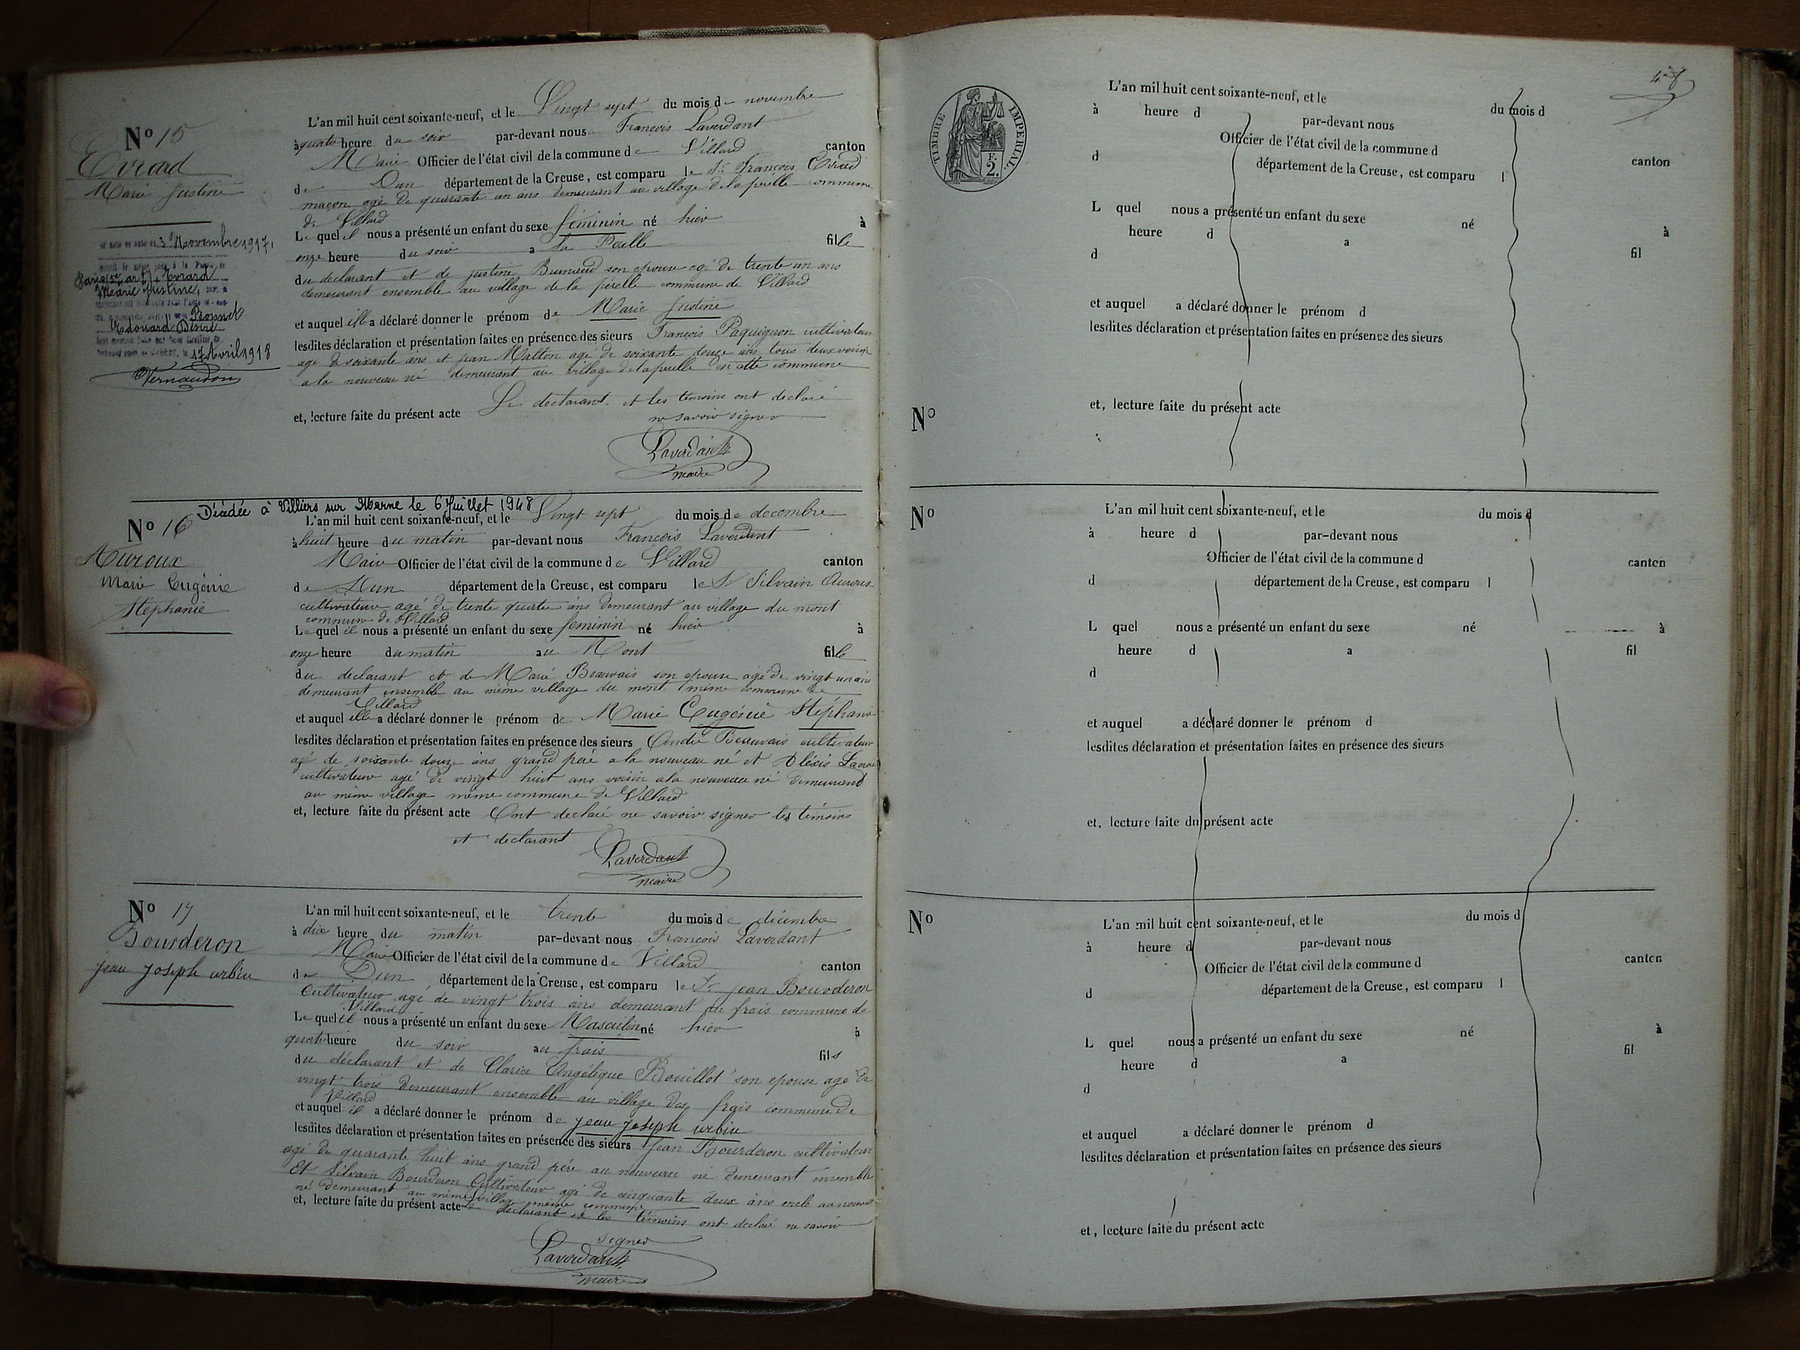 No 15
Evrard
Marie Justine
3 Novembre 1917,
Paris
Evrard
Marie Justine,
Bonnet
Edouard Désiré
17 Avril 1918
Vernaudon
L'an mil huit cent soixante-neuf, et le Vingt sept du mois de novembre
à quatre heure du soir par-devant nous François Laverdant
Maire Officier de l'état civil de la commune de Villard canton
de Dun département de la Creuse, est comparu le Sr François Evrard
maçon agé de quarante un ans demeurant au village de la peille commune
de Villard
Le quel il nous a présenté un enfant du sexe féminin né hier à
onze heure du soir a la Peille fille
du declarant et de justine Brunaud son epouse agé de trente un ans
demeurant ensemble au village de la peille commune de Villard
et auquel ill a déclaré donner le prénom de Marie Justine
lesdites déclaration et présentation faites en présence des sieurs François Paquignon cultivateur
agé de soixante ans et jean Malton age de soixante douze ans tous deux voisin
a la nouveau né demeurant au village de la peille en cette commune
et, lecture faite du présent acte Le declarant et les témoins ont declaré
ne savoir signer
Laverdant
maire
Décédée à Villiers sur Marne le 6 Juillet 1948
No 16
Auroux
Marie Eugénie
Stéphanie
L'an mil huit cent soixante-neuf, et le Vingt sept du mois de decembre
à huit heure du matin par-devant nous François Laverdant
Maire Officier de l'état civil de la commune de Villard canton
de Dun département de la Creuse, est comparu le Sr Silvain Auroux
cultivateur agé de trente quatre ans demeurant au village du mont
commune de Villard
Le quel il nous a présenté un enfant du sexe feminin né hier à
onze heure du matin au Mont fille
du declarant et de Marie Beauvais son epouse agé de vingt un ans
demeurant ensemble au même village du mont même commune de
Villard
et auquel ill a déclaré donner le prénom de Marie Eugénie Stéphanie
lesdites déclaration et présentation faites en présence des sieurs André Beauvais cultivateur
agé de soixante douze ans grand père a la nouveau né et Aléxis
cultivateur agé de vingt huit ans voisin a la nouveau né demeurant
au même village même commune de Villard
et, lecture faite du présent acte Ont declaré ne savoir signer les témoins
et declarant
Laverdant
maire
No 17
Bourderon
jean joseph urbin
L'an mil huit cent soixante-neuf, et le trente du mois de décembre
à dix heure du matin par-devant nous François Laverdant
Maire Officier de l'état civil de la commune de Villard canton
de Dun département de la Creuse, est comparu le Sr jean Bourderon
Cultivateur agé de vingt trois ans demeurant au frais commune de
Villard
Le quel il nous a présenté un enfant du sexe Masculin né hier à
quatre heure du soir au frais fils
du déclarant et de Clarice Angélique Bouillot son epouse age de
vingt trois demeurant ensemble au village des frais commune de
Villard
et auquel il a déclaré donner le prénom de jean joseph urbin
lesdites déclaration et présentation faites en présence des sieurs Jean Bourderon cultivateur
agé de quarante huit ans grand père au nouveau né demeurant ensemble
et Silvain Bourderon Cultivateur agé de cinquante deux ans oncle au nouveau
né demeurant au même village même commune
et, lecture faite du présent acte le declarant et les témoins ont declaré ne savoir
signer
Laverdant
maire
48
TIMBRE IMPERIAL
F.
2.
L'an mil huit cent soixante-neuf, et le du mois d
à heure d par-devant nous
Officier de l'état civil de la commune d canton
d département de la Creuse, est comparu l
L quel nous a présenté un enfant du sexe né à
heure d a fil
d
et auquel a déclaré donner le prénom d
lesdites déclaration et présentation faites en présence des sieurs
No
et, lecture faite du présent acte
No
L'an mil huit cent soixante-neuf, et le du mois d
à heure d par-devant nous
Officier de l'état civil de la commune d canton
d département de la Creuse, est comparu l
L quel nous a présenté un enfant du sexe né à
heure d a fil
d
et auquel a déclaré donner le prénom d
lesdites déclaration et présentation faites en présence des sieurs
et, lecture faite du présent acte
No
L'an mil huit cent soixante-neuf, et le du mois d
à heure d par-devant nous
Officier de l'état civil de la commune d canton
d département de la Creuse, est comparu l
L quel nous a présenté un enfant du sexe né à
heure d a fil
d
et auquel a déclaré donner le prénom d
lesdites déclaration et présentation faites en présence des sieurs
et, lecture faite du présent acte